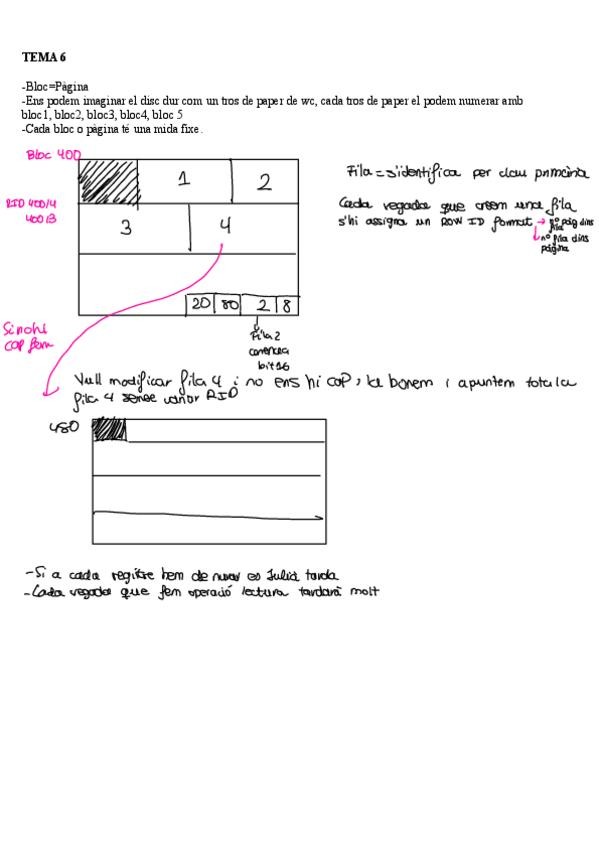 TEMA 6
-Bloc=Pàgina
-Ens podem imaginar el disc dur com un tros de paper de wc, cada tros de paper el podem numerar amb
bloc1, bloc2, bloc3, bloc4, bloc 5
-Cada bloc o pàgina té una mida fixe.
Bloc 400
1 2
Fila = s'identifica per clau primària
RID 400/4
400/3
3 4
Cada vegada que creem una fila
s'hi assigna un ROW ID format → nº pàg dins
fila
nº fila dins
pàgina
20 80 2 8
Si no hi
cap fem
Fila 2
comença
bit
Vull modificar fila 4 i no ens hi cap, la borrem i apuntem tota la
fila 4 sense variar RID
480
-Si a cada registre hem de es tarda
-Cada vegada que fem operació lectura tardarà molt